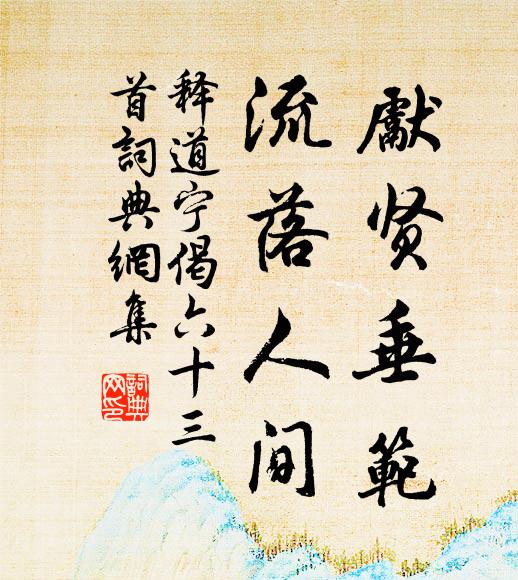 獻贤垂範
流落人间
释道宁偈六十三
首詞典網集
詞典
网印